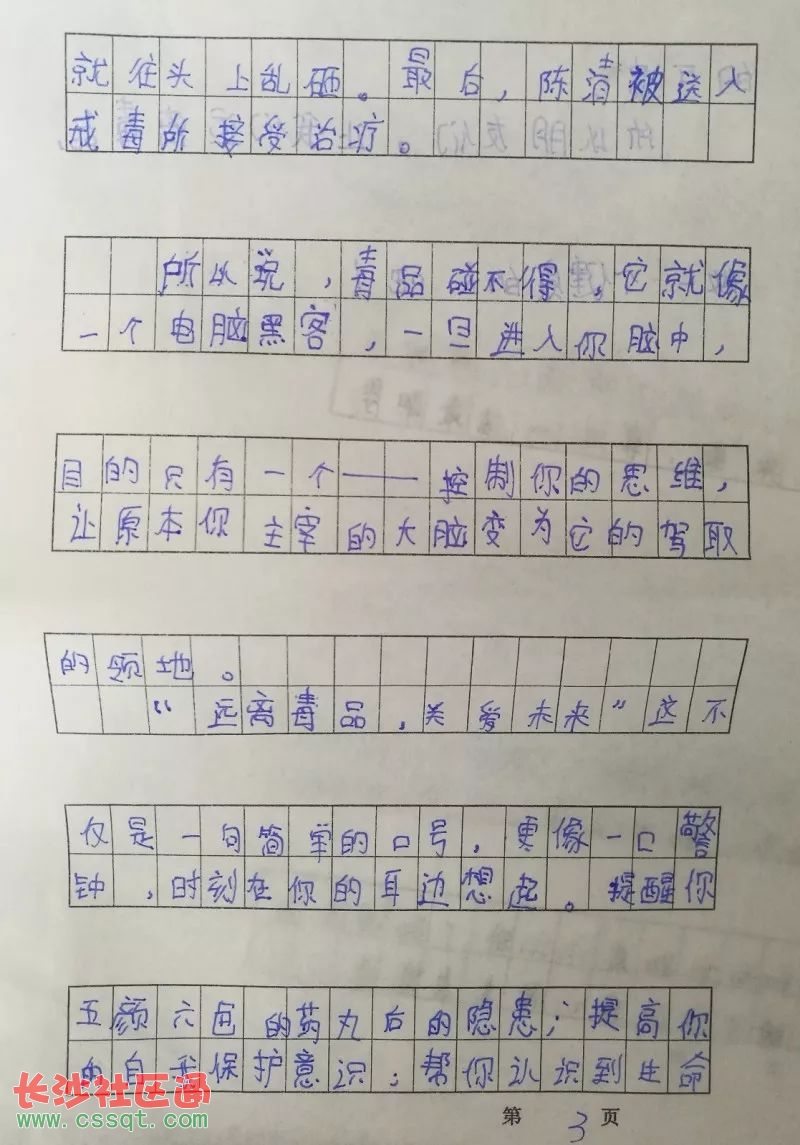 就往头上乱砸。最后，陈清被送入
戒毒所接受治疗。
所以说，毒品碰不得，它就像
一个电脑黑客，一旦进入你脑中，
目的只有一个——控制你的思维，
让原本你主宰的大脑变为它的驾驭
的领地。
“远离毒品，关爱未来”这不
仅是一句简单的口号，更像一口警
钟，时刻在你的耳边想起。提醒你
五颜六色的药丸后的隐患；提高你
的自我保护意识；帮你认识到生命
长沙社区通
www.cssqt.com
第 3 页